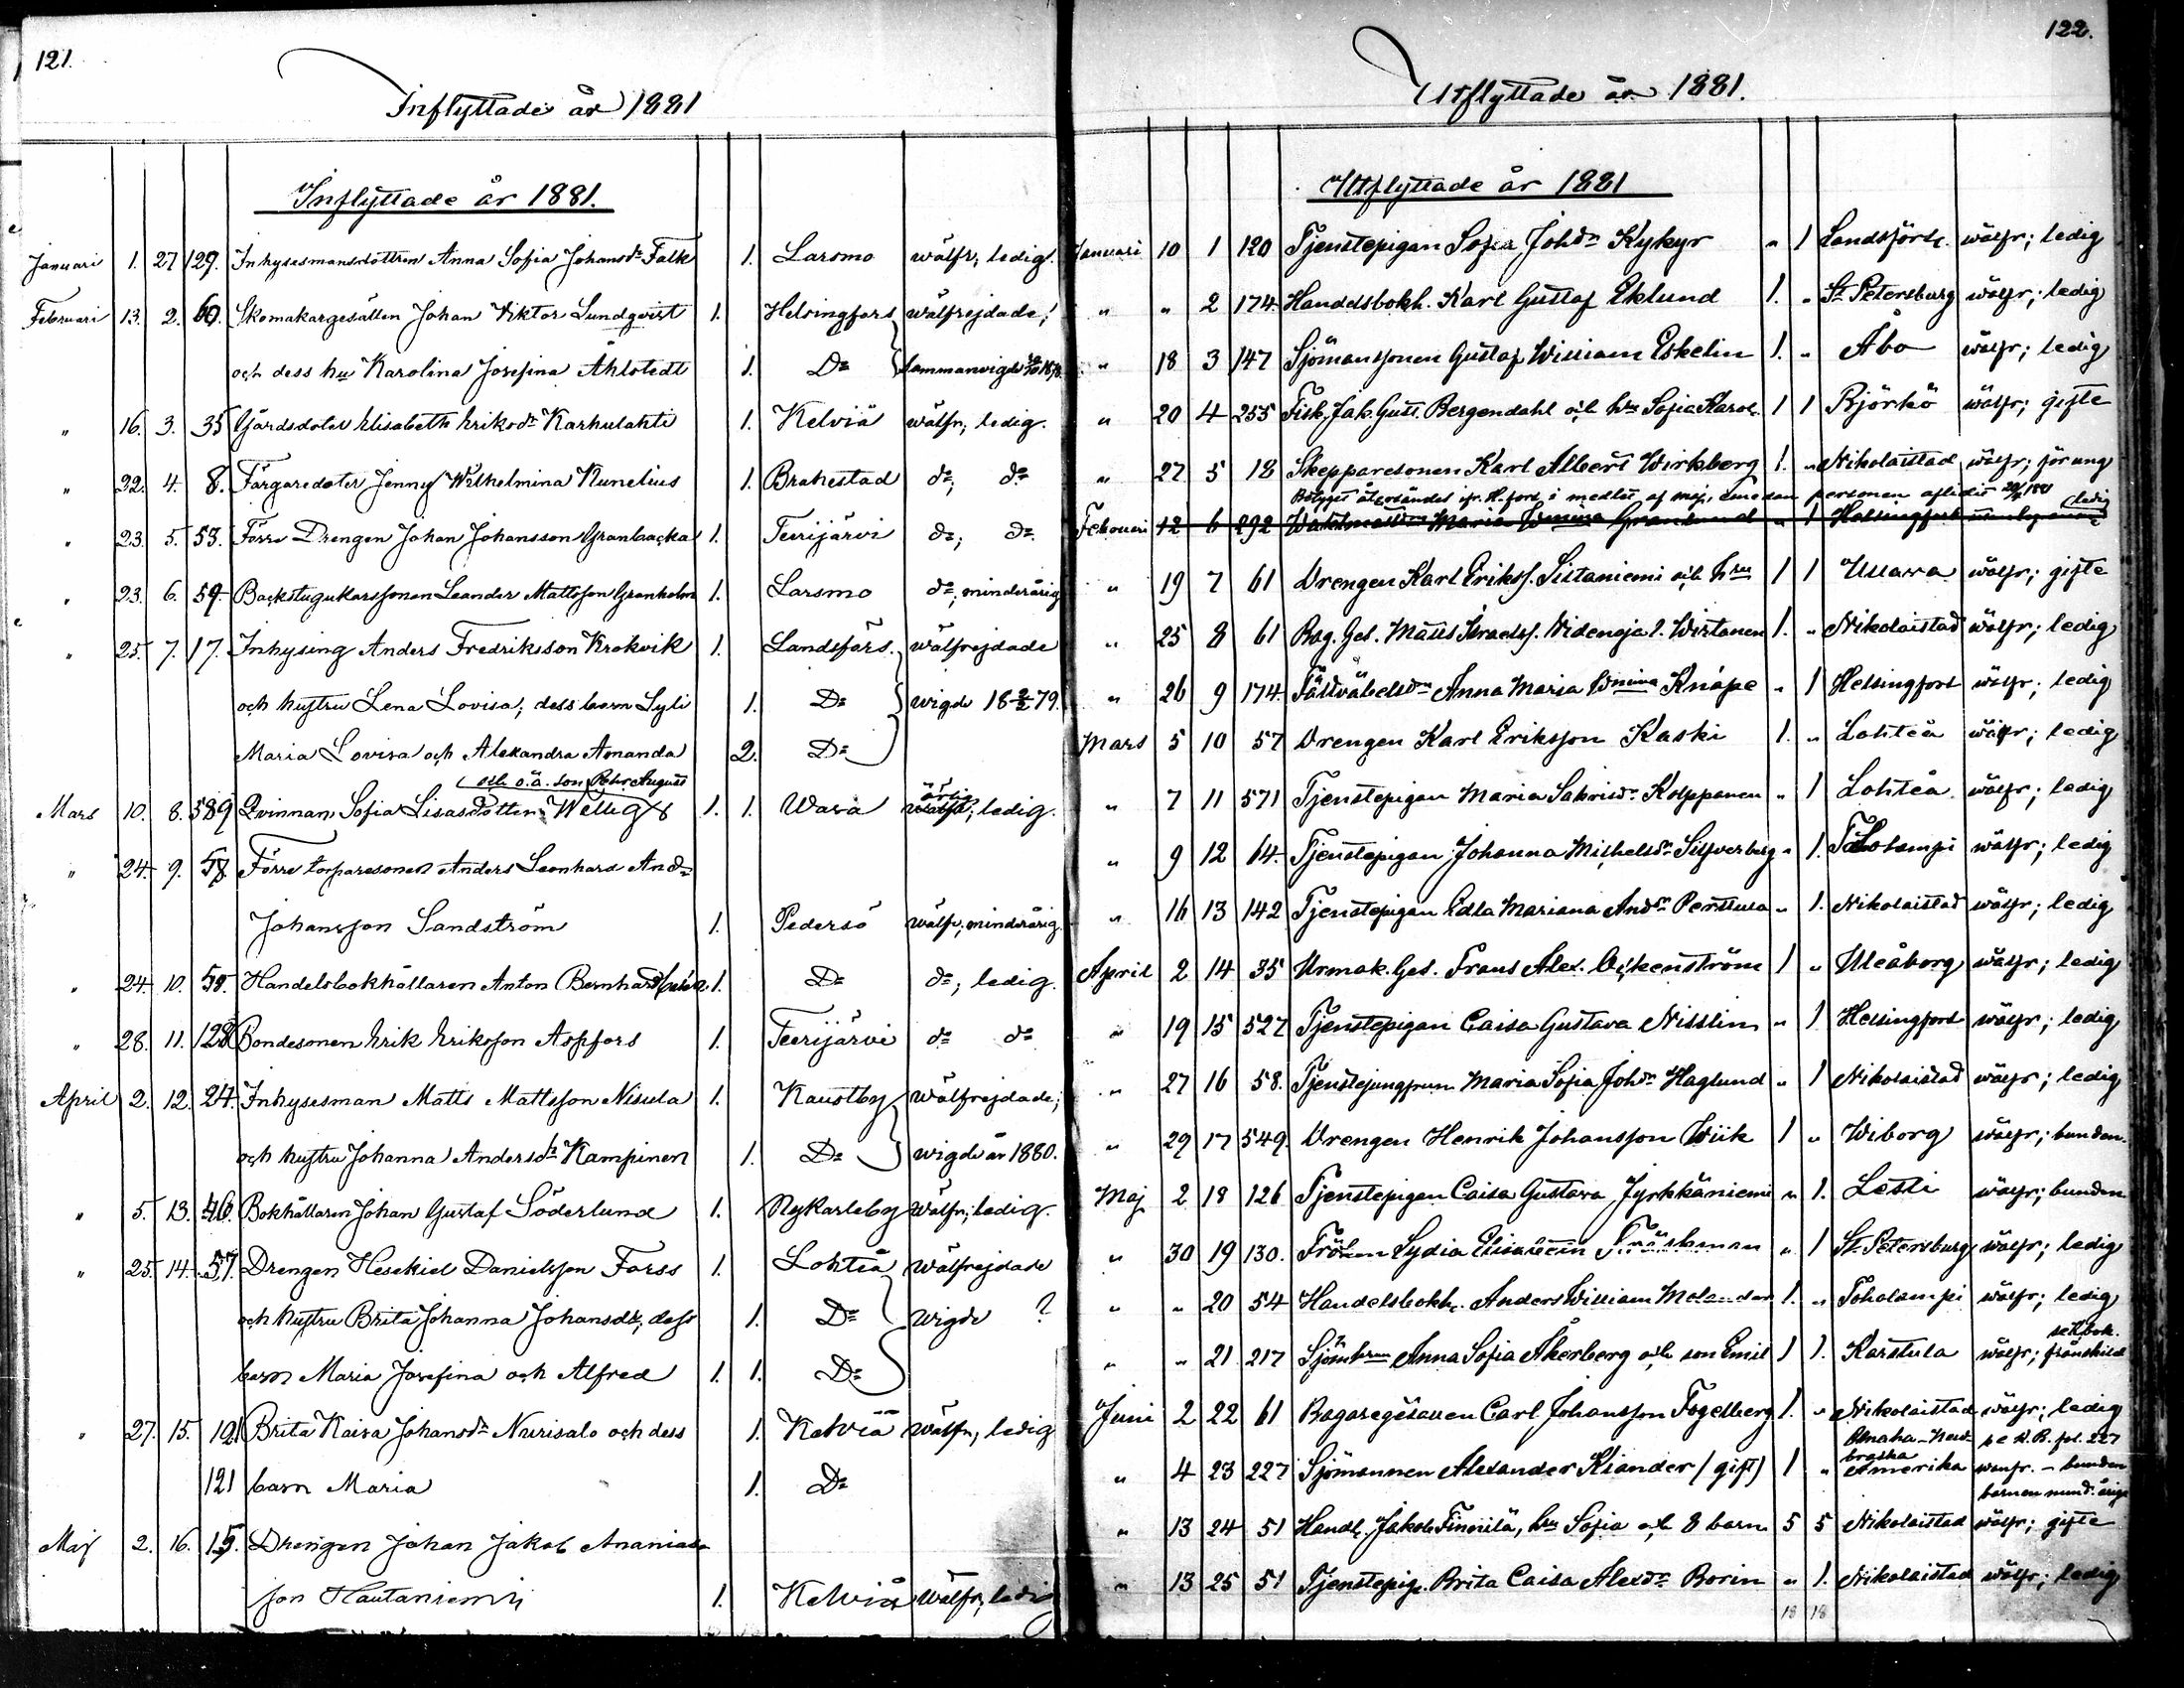 121.
Inflyttade år 1881
Inflyttade år 1881.
Januari 1. 27 129. Inhysesmansdottren Anna Sofia Johansdr Falk 1. Larsmo wälfr; ledig.
Februari 13. 2. 60. Skomakargesällen Johan Viktor Lundqvist 1. Helsingfors wälfrejdade;
och dess hu Karolina Josefina Åhlstedt 1. Do sammanvigde
" 16. 3. 35 Gårdsdoter Elisabeth Eriksdr Karhulahti 1. Kelviå wälfr; ledig.
" 22. 4. 8. Färgaredoter Jenny Wilhelmina Runelius 1. Brahestad do; do
" 23. 5. 53. Förre Drengen Johan Johansson Granbacka 1. Teerijärvi do; do.
" 23. 6. 59. Backstugukarssonen Leander Mattsson Granholm 1. Larsmo do; minderårig
" 25. 7. 17. Inhysing Anders Fredriksson Krokvik 1. Landsförs. wälfrejdade
och hustru Lena Lovisa; dess barn Lyli 1. Do wigde 18 2/2 79.
Maria Lovisa och Alexandra Amanda 2. Do
och o.ä. son Pehr August
Mars 10. 8. 589 Qvinnan Sofia Lisasdotter Wellig 1. 1. Wasa ärlig; ledig.
" 24. 9. 58 Förre torparesonen Anders Leonhard And-
Johansson Sandström 1. Pedersö wälfr; minderårig
" 24. 10. 50. Handelsbokhållaren Anton Bernhard 1. Do do; ledig.
" 28. 11. 128 Bondesonen Erik Eriksson Aspfors 1. Teerijärvi do do
April 2. 12. 24. Inhysesman Matts Mattsson Nisula 1. Kaustby wälfrejdade;
och hustru Johanna Andersdr Kampinen 1. Do wigde år 1880.
" 5. 13. 46. Bokhållaren Johan Gustaf Söderlund 1. Nykarleby wälfr; ledig.
" 25. 14. 57. Drengen Hesekiel Danielsson Forss 1. Lohteå wälfrejdade
och hustru Brita Johanna Johansdr, dess 1. Do wigde ?
barn Maria Josefina och Alfred 1. 1. Do
" 27. 15. 121 Brita Kaisa Johansdr Nurisalo och dess 1. Kelviå wälfr; ledig
121 barn Maria 1. Do
Maj 2. 16. 15. Drengen Johan Jakob Ananias-
son Hautaniemi 1. Kelviå wälfr; ledig
122.
Utflyttade år 1881.
Utflyttade år 1881
Januari 10 1 120 Tjenstepigan Sofia Johdr Kykyr " 1 Landsförs. wälfr; ledig
" " 2 174 Handelsbokh. Karl Gustaf Eklund 1. " St Petersburg wälfr; ledig
" 18 3 147 Sjömanssonen Gustaf William Eskelin 1. " Åbo wälfr; ledig
" 20 4 255 Fisk. Jak. Gust. Bergendahl och hu Sofia Karol. 1 1 Björkö wälfr; gifte
" 27 5 18 Skepparesonen Karl Albert Wirkberg 1. " Nikolaistad wälfr; för ung
Betyget återsändes ifr. H.fors i medlet af maj, emedan personen aflidit
Februari 12 6 292 Maria Wmina Granlund " 1 Helsingfors ledig
" 19 7 61 Drengen Karl Erikss. Sistaniemi och hru 1 1 Ullava wälfr; gifte
" 25 8 61 Bag. Ges. Matts Israelss. Widenoja l. Wirtanen 1. " Nikolaistad wälfr; ledig
" 26 9 174 Fältväbelsdr Anna Maria Wmina Knåpe " 1 Helsingfors wälfr; ledig
Mars 5 10 57 Drengen Karl Eriksson Kaski 1. " Lohteå wälfr; ledig
" 7 11 571 Tjenstepigan Maria Sakrisdr Kolppanen " 1 Lohteå wälfr; ledig
" 9 12 64. Tjenstepigan Johanna Michelsdr Silfverberg " 1. Toholampi wälfr; ledig
" 16 13 142 Tjenstepigan Edla Mariana Anddr Penttula " 1. Nikolaistad wälfr; ledig
April 2 14 35 Urmak. Ges. Frans Alex. Öckenström 1 " Uleåborg wälfr; ledig
" 19 15 527 Tjenstepigan Caisa Gustava Nisslin " 1 Helsingfors wälfr; ledig
" 27 16 58. Tjenstejungfrun Maria Sofia Johdr Haglund " 1 Nikolaistad wälfr; ledig
" 29 17 549. Drengen Henrik Johansson Wiik 1 " Wiborg wälfr; bunden.
Maj 2 18 126 Tjenstepigan Caisa Gustava Jyrkkäniemi " 1. Lesti wälfr; bunden
" 30 19 130. Fröken Lydia Elisabeth " 1 St Petersburg wälfr; ledig
" " 20 54 Handelsbokh. Anders William Molander 1. " Toholampi wälfr; ledig
" " 21 217 Sjömhrun Anna Sofia Åkerberg och son Emil 1 1. Karstula wälfr; frånskild
Juni 2 22 61 Bagaregesällen Carl Johansson Fogelberg 1. " Nikolaistad wälfr; ledig
Omaha-Nebraska
" 4 23 227 Sjömannen Alexander Kiander (gift) 1 " Amerika wälfr. - bunden
" 13 24 51 Handl. Jakob Finnilä, hu Sofia och 8 barn 5 5 Nikolaistad wälfr; gifte
" 13 25 51 Tjenstepig. Brita Caisa Alexdr Borin " 1. Nikolaistad wälfr; ledig
18 18